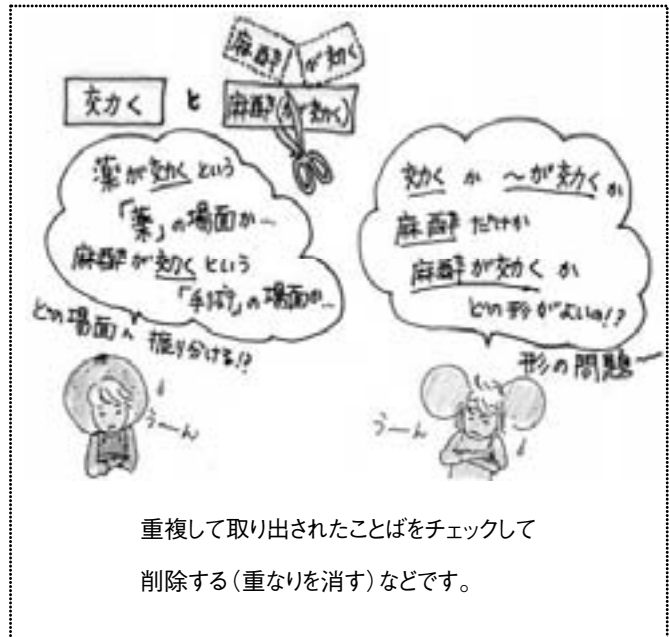 麻酔 が効く
効く と 麻酔(が効く)
薬が効くという
「薬」の場面か…
麻酔が効くという
「手術」の場面か…
どの場面へ振り分ける!?
うーん
効くか 〜が効くか
麻酔だけか
麻酔が効くか
どの形がよいの!?
形の問題〜
うーん
重複して取り出されたことばをチェックして
削除する(重なりを消す)などです。